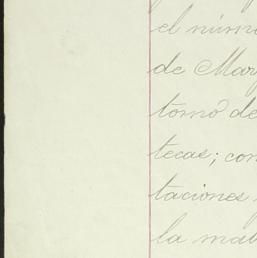 el núm
de Mar
tomo de
tecas; con
taciones
la mat